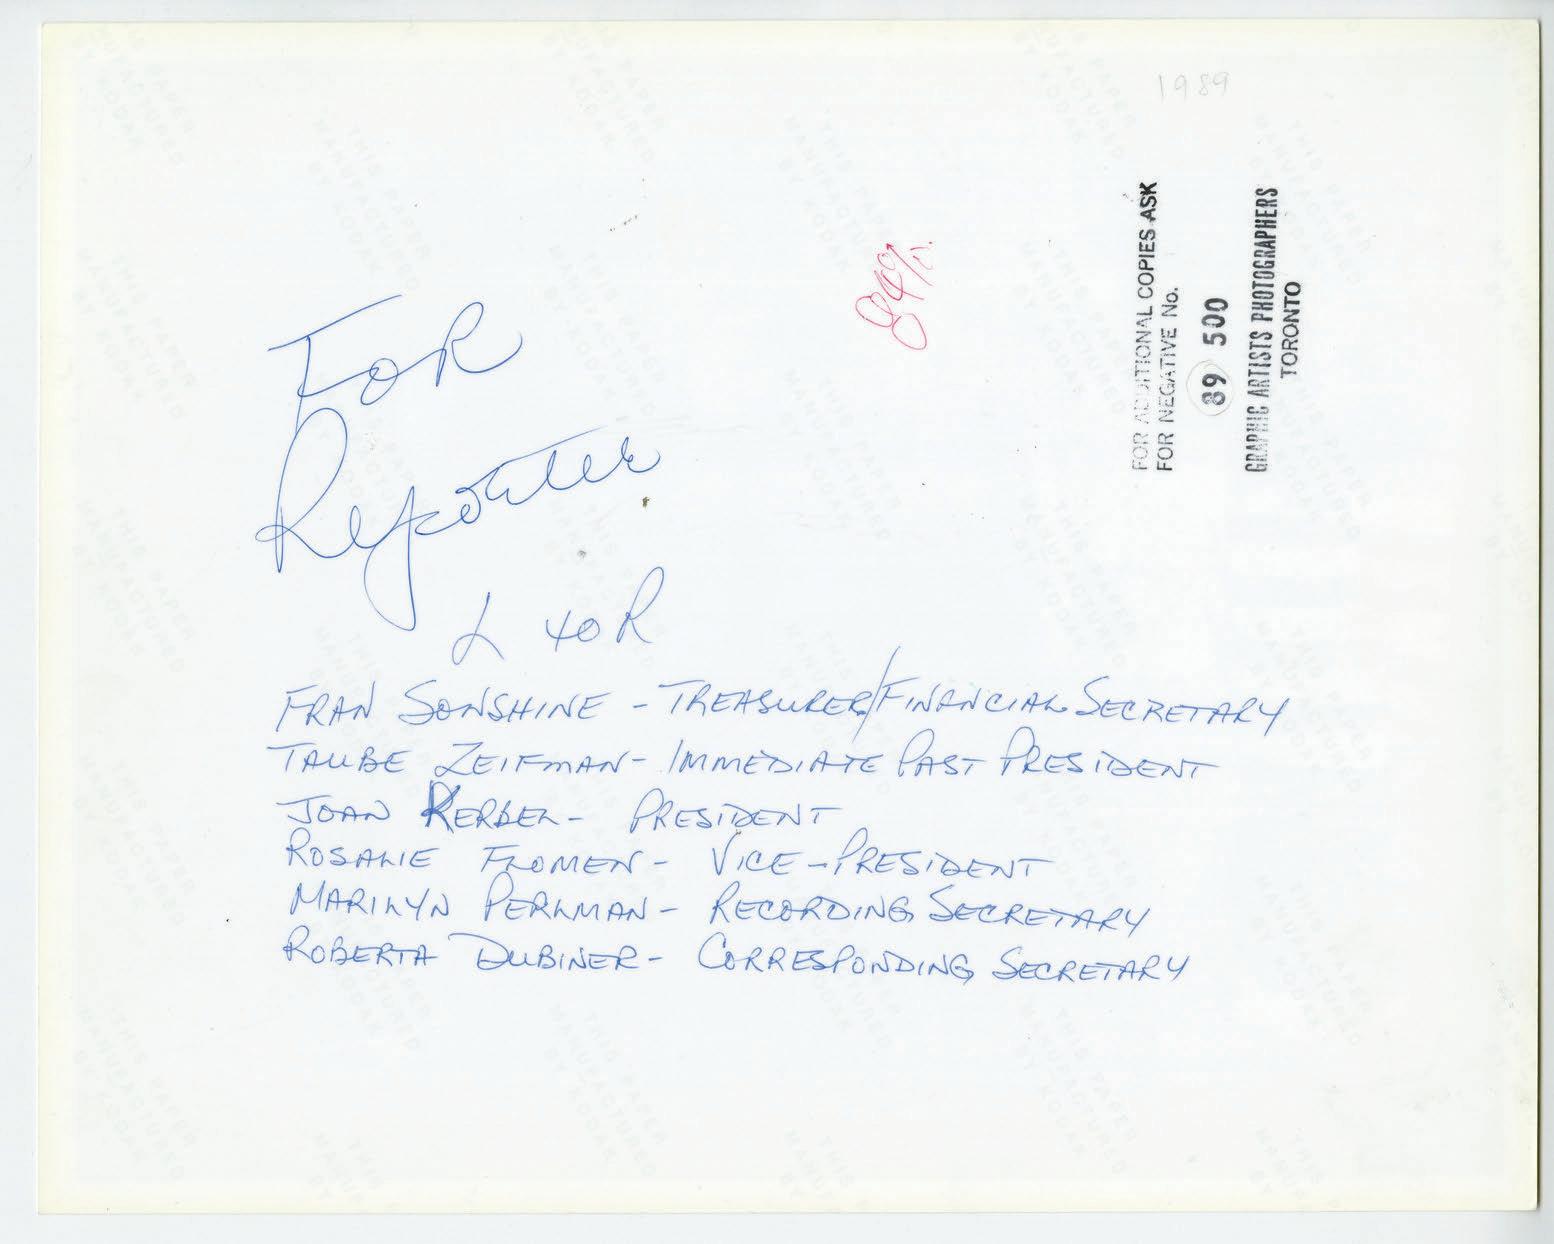 1989
FOR ADDITIONAL COPIES ASK
FOR NEGATIVE No.
89 500
GRAPHIC ARTISTS PHOTOGRAPHERS
TORONTO
84%
FOR
Reporter
L to R
FRAN SONSHINE - TREASURER/FINANCIAL SECRETARY
TAUBE ZEIFMAN - IMMEDIATE PAST PRESIDENT
JOAN KERBEL - PRESIDENT
ROSALIE FROMEN - VICE-PRESIDENT
MARILYN PERLMAN - RECORDING SECRETARY
ROBERTA DUBINER - CORRESPONDING SECRETARY
THIS PAPER
MANUFACTURED
BY KODAK